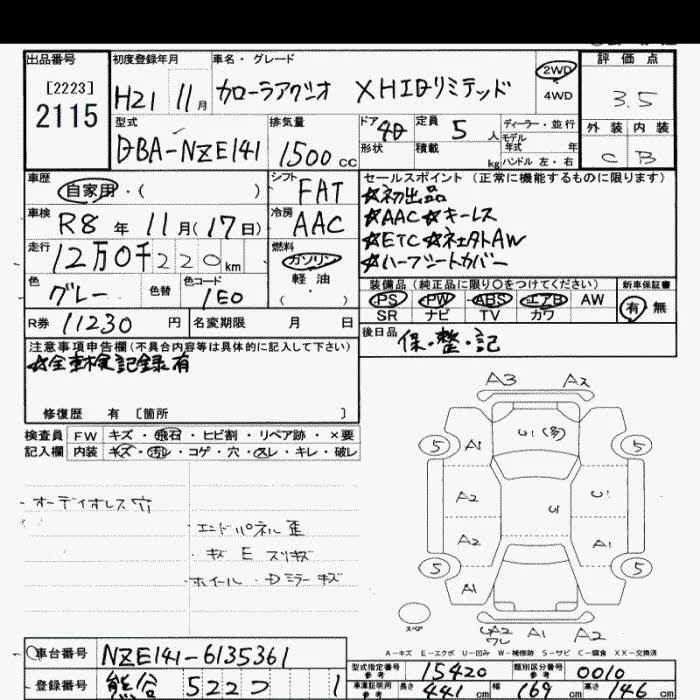 出品番号
[2223]
2115
初度登録年月
H21 11月
車名・グレード
カローラアクシオ XHIDリミテッド
2WD
4WD
評価点
3.5
外装 内装
C B
型式
DBA-NZE141
排気量
1500cc
ドア
4D
形状
定員
5人
積載
kg
ディーラー・並行
モデル
年式 年
ハンドル 左・右
車歴
自家用・( )
シフト
FAT
車検
R8年11月(17日)
冷房
AAC
走行
12万0千220km
燃料
ガソリン
軽油
( )
色
グレー
色替
色コード
1E0
セールスポイント(正常に機能するものに限ります)
☆初出品
☆AAC☆キーレス
☆ETC☆社外AW
☆ハーフシートカバー
装備品(純正品に限り○をつけてください)
PS PW ABS エアB AW
SR ナビ TV カワ
新車保証書
有 無
R券 11230円
名変期限 月 日
後日品
保・整・記
注意事項申告欄(不具合内容等は具体的に記入して下さい)
☆全車検記録有
修復歴 有 [箇所 ]
検査員
記入欄
FW キズ・飛石・ヒビ割・リペア跡・×要
内装 キズ・汚レ・コゲ・穴・スレ・キレ・破レ
オーディオレス穴
エンドパネル歪
キズ E スリキズ
ホイール・Dミラーキズ
A3 A2
5 A1 U1(多) 5
A2 U1 U1
A2 A1
5 A1 5
スペア
A2 A1 A2
A-キズ E-エクボ U-凹み W-補修跡 S-サビ C-腐食 XX-交換済
車台番号
NZE141-6135361
登録番号
熊谷 522 フ 1
型式指定番号
参考
15420
類別区分番号
参考
0010
車庫証明用
参考
長さ 441cm 幅 169cm 高さ 146cm